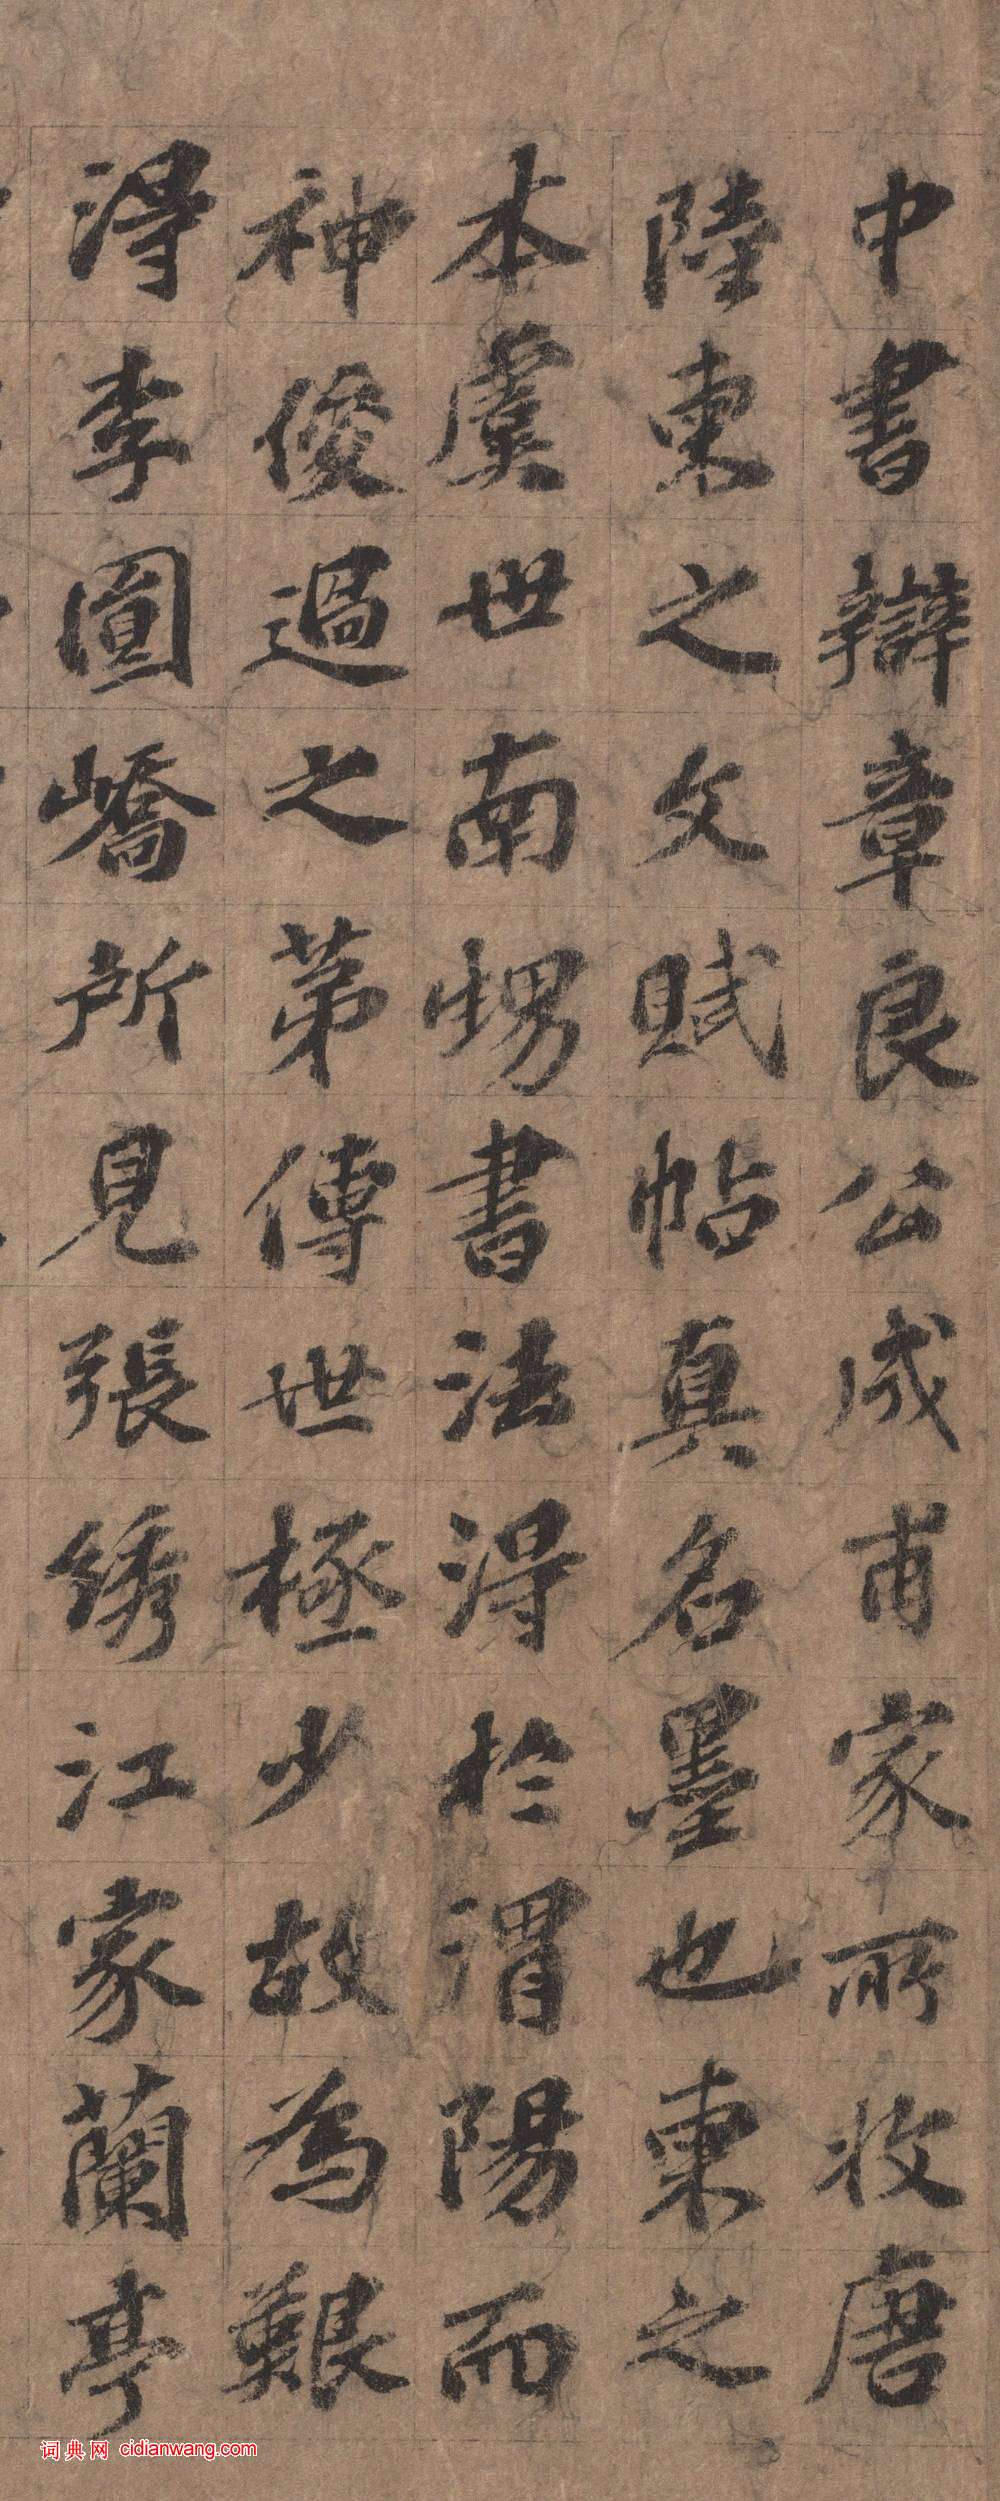 中書辯章良公成甫家所收唐
陸柬之文賦帖真名墨也柬之
本虞世南甥書法得於渭陽而
神俊過之第傳世極少故為艱
得李圖嶠所見張綉江家蘭亭
词典网 cidianwang.com